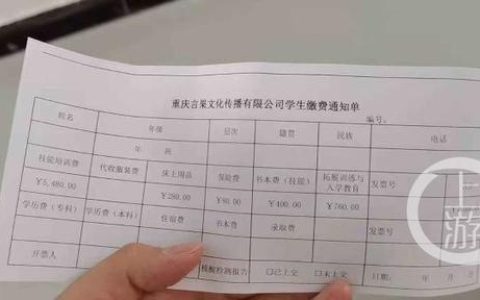 重庆言果文化传播有限公司学生缴费通知单
编号:
姓名 年龄 层次 籍贯 民族 电话
年 班
技能培训费 代收服装费 床上用品 保险费 书本费（技能） 拓展训练与入学教育 发票号
¥5,480.00 ¥280.00 ¥80.00 ¥400.00 ¥760.00
学历费（专科） 学历费（本科） 住宿费 书本费 录取费 发票号
开票人 核酸检测报告 □已上交 □未上交 日期: 年 月
上游